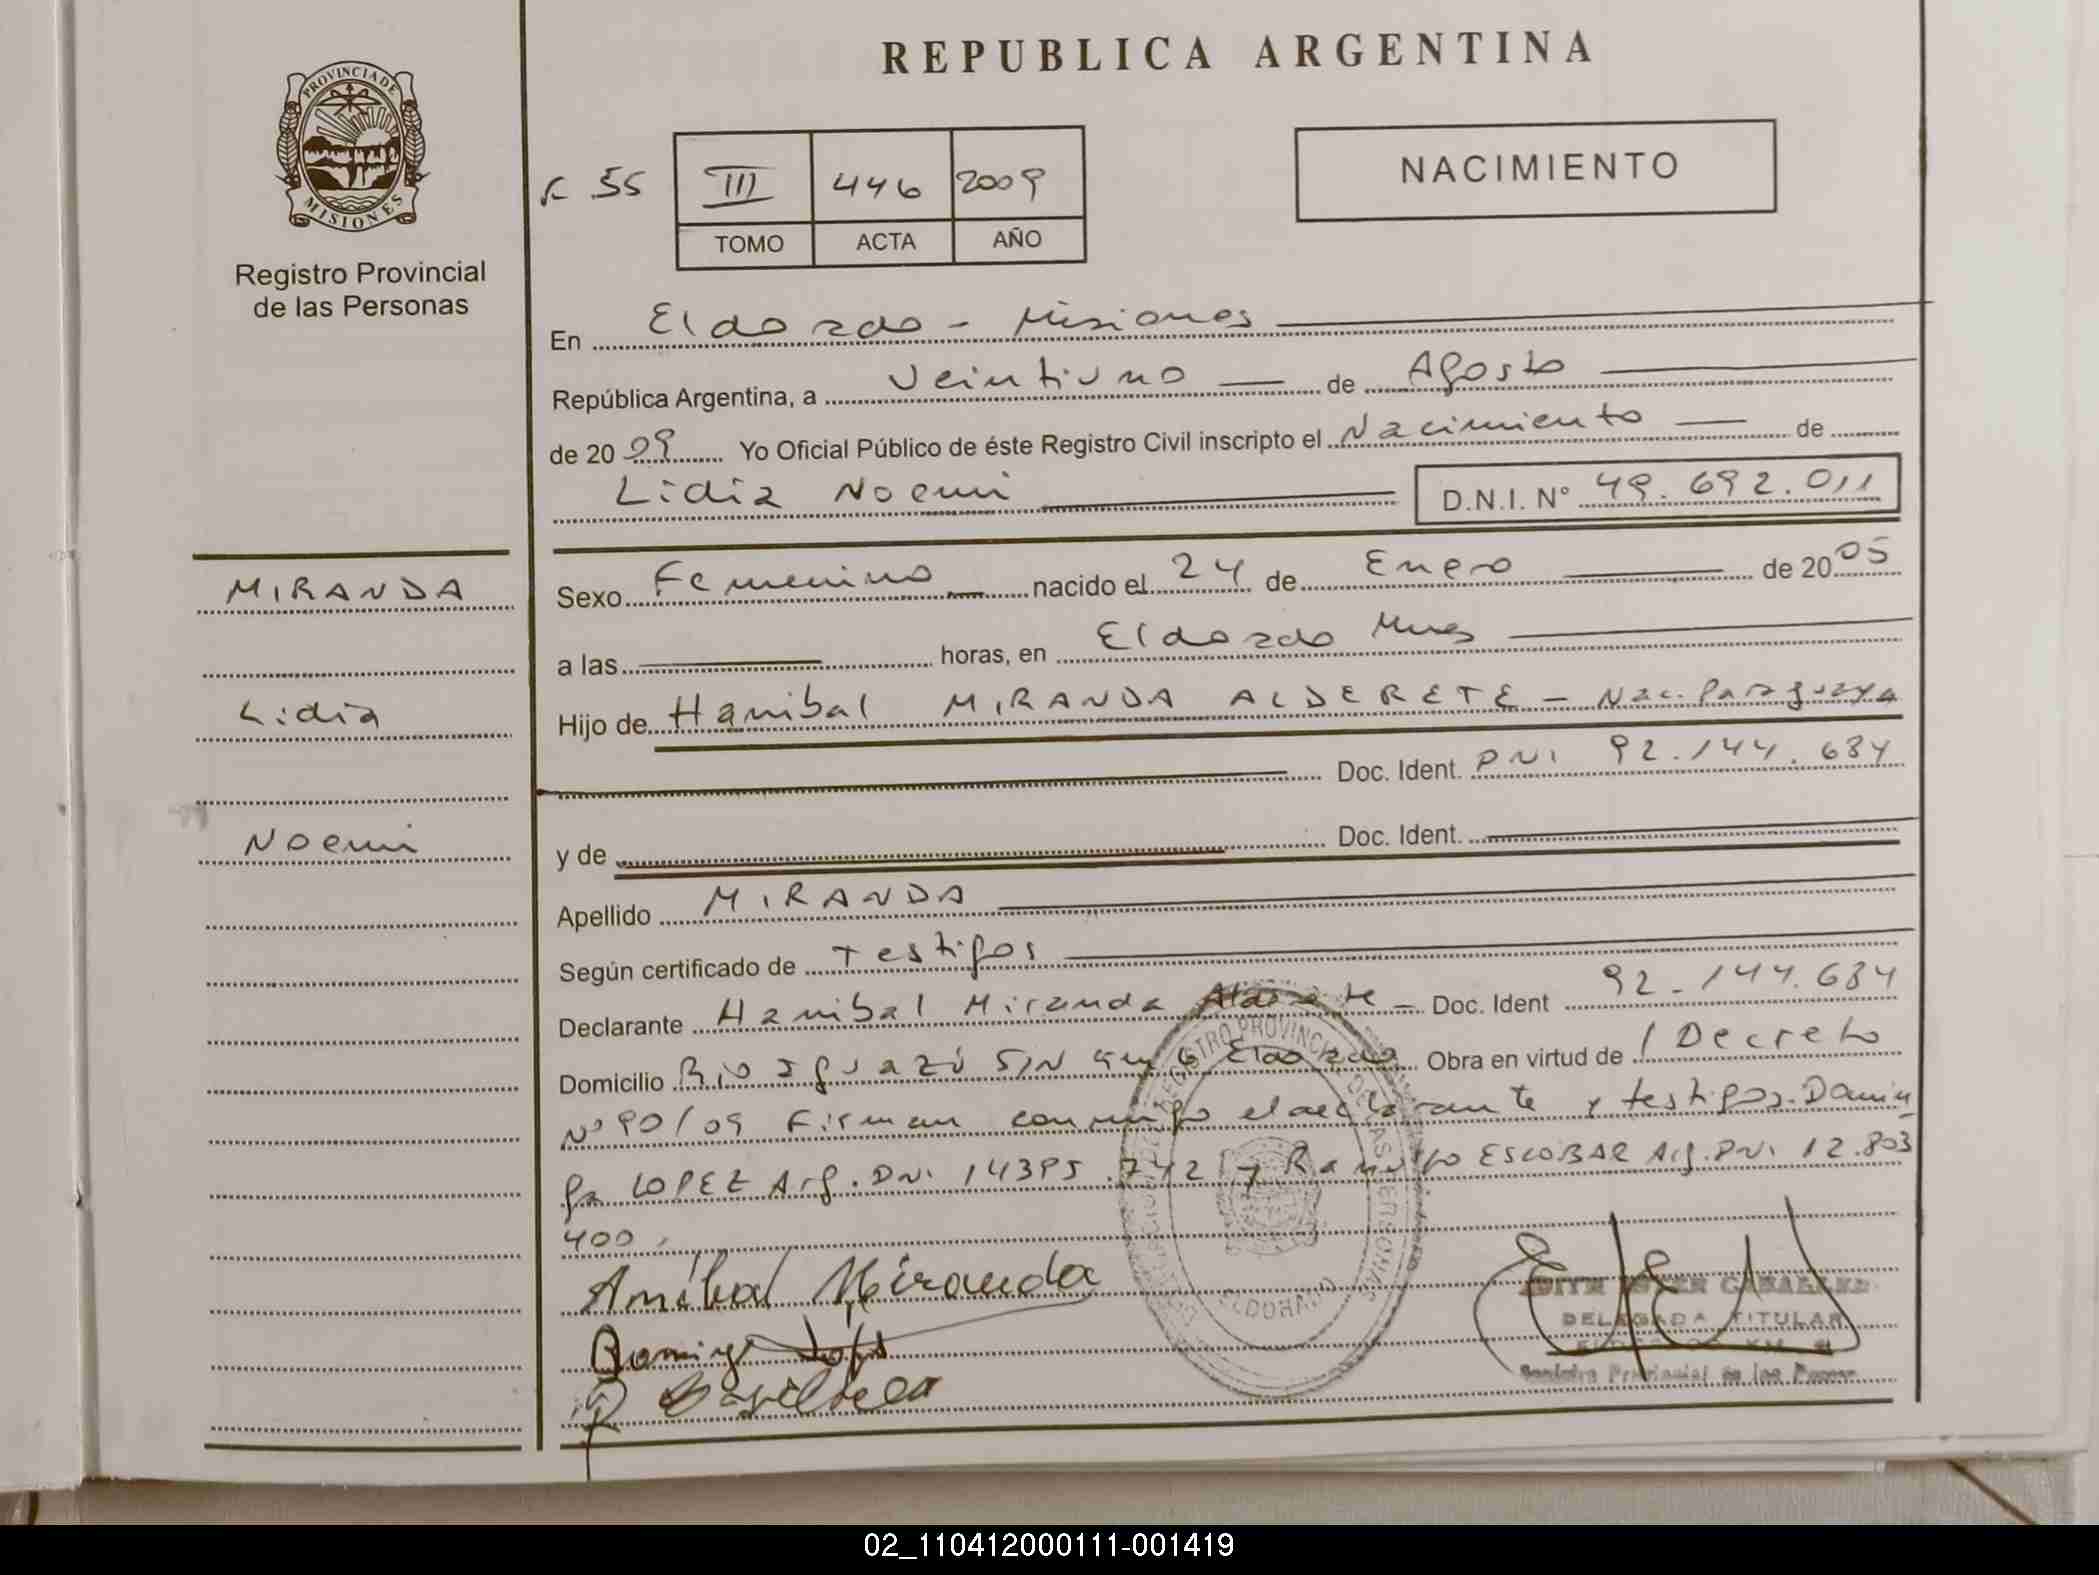 REPUBLICA ARGENTINA
PROVINCIA DE
MISIONES
Registro Provincial
de las Personas
F 55
III 446 2009
TOMO ACTA AÑO
NACIMIENTO
En Eldorado - Misiones
República Argentina, a veintiuno de Agosto
de 2009 Yo Oficial Público de éste Registro Civil inscripto el Nacimiento de
Lidia Noemi D.N.I. N° 49.692.011
MIRANDA
Lidia
Noemi
Sexo Femenino nacido el 24 de Enero de 2005
a las horas, en Eldorado Mnes
Hijo de Hanibal MIRANDA ALDERETE - Nac. Paraguaya
Doc. Ident. DNI 92.144.634
y de Doc. Ident.
Apellido MIRANDA
Según certificado de Testigos
Declarante Hanibal Miranda Alderete - Doc. Ident 92.144.634
Domicilio Rio Iguazú S/N Km 6 Eldorado Obra en virtud de / Decreto
N° 90/09 Firman conmigo el declarante y testigos. Domin
go LOPEZ Arg. DNI 14395.742 y Ramon ESCOBAR Arg. DNI 12.803
400.
Aníbal Miranda
Domingo
REGISTRO PROVINCIAL DE LAS PERSONAS
ELDORADO
DELEGADA TITULAR
Registro Provincial de las Person
02_110412000111-001419